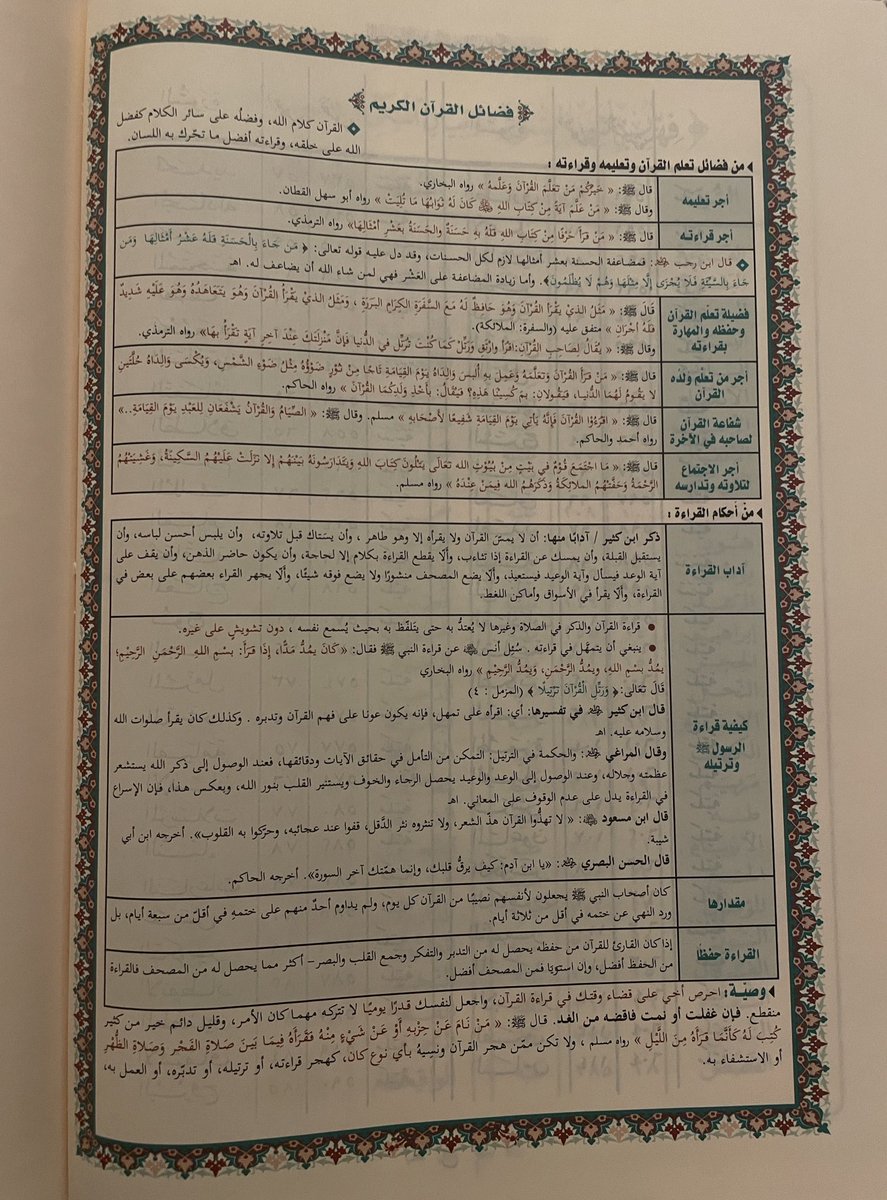 فضائل القرآن الكريم
القرآن كلام الله، وفضلُه على سائر الكلام كفضل
الله على خلقه، وقراءته أفضل ما تحرّك به اللسان.
من فضائل تعلم القرآن وتعليمه وقراءته :
أجر تعليمه
قال ﷺ: « خَيْرُكُمْ مَنْ تَعَلَّمَ القُرْآنَ وَعَلَّمهُ » رواه البخاري.
وقال ﷺ: « مَنْ عَلَّمَ آيَةً مِنْ كِتَابِ اللهِ ﷻ كَانَ لَهُ ثَوَابُهَا مَا تُلِيَتْ » رواه أبو سهل القطان.
أجر قراءته
قال ﷺ: « مَنْ قرَأَ حَرْفًا مِنْ كتَابِ الله فَلَهُ بِهِ حَسَنَةٌ والحَسَنَةُ بعَشْرِ أمْثَالِهَا» رواه الترمذي.
قال ابن رجب ﵀: فمضاعفة الحسنة بعشر أمثالها لازم لكل الحسنات، وقد دل عليه قوله تعالى: ﴿ مَن جَاءَ بِالْحَسَنَةِ فَلَهُ عَشْرُ أَمْثَالِهَا وَمَن
جَاءَ بِالسَّيِّئَةِ فَلَا يُجْزَى إِلَّا مِثْلَهَا وَهُمْ لَا يُظْلَمُونَ﴾. وأما زيادة المضاعفة على العَشْر فهي لمن شاء الله أن يضاعف له. اهـ
فضيلة تعلم القرآن
وحفظه والمهارة
بقراءته
قَالَ ﷺ: « مَثَلُ الذِي يَقْرَأُ القُرْآنَ وَهوَ حَافظٌ لَهُ مَعَ السَّفَرَةِ الكِرَامِ البَرَرَةِ ، وَمَثَلُ الذِيْ يَقْرَأُ القُرْآنَ وَهُوَ يَتَعَاهَدُهُ وَهُوَ عَلَيْهِ شَدِيدٌ
فَلَهُ أجْرَانِ » متفق عليه (والسفرة: الملائكة).
وقال ﷺ: « يُقَالُ لِصَاحِبِ القُرْآنِ:اقرَأْ وارْتَقِ وَرَتِّلْ كَمَا كُنْتَ تُرَتِّلُ في الدُّنيا فَإنَّ مَنْزِلَتَكَ عِنْدَ آخِرِ آيَةٍ تَقْرَأُ بهَا» رواه الترمذي.
أجر من تعلّم ولَدُه
القرآن
قال ﷺ: « مَنْ قرَأَ القُرْآنَ وَتَعَلَّمَهُ وَعَمِلَ بِهِ أُلبِسَ وَالِدَاهُ يَوْمَ القِيَامَةِ تَاجًا مِنْ نُوْرٍ ضَوْؤُهُ مِثْلُ ضَوْءِ الشَّمْسِ، وَيُكْسَى وَالِدَاهُ حُلَّتَينِ
لا يقُومُ لَهُمَا الدُّنيـا، فيَقُولانِ: بِمَ كُسِينَا هَذِهِ؟ فيُقَالُ: بأَخْذِ وَلَدِكُمَا القُرْآنَ » رواه الحاكم.
شفاعة القرآن
لصاحبه في الآخرة
قال ﷺ: « اقرَءُوا القُرْآنَ فَإنَّهُ يَأتِي يَوْمَ القِيَامَةِ شَفِيعًا لأَصْحَابِهِ » مسلم. وقال ﷺ: « الصِّيَامُ وَالقُرْآنُ يَشْفَعَانِ لِلعَبْدِ يَوْمَ القِيَامَةِ..»
رواه أحمد والحاكم.
أجر الاجتماع
لتلاوته وتدارسه
قال ﷺ: « مَا اجْتَمَعَ قَوْمٌ فِي بَيْتٍ مِنْ بُيُوْتِ الله تعَالَى يَتْلُونَ كِتَابَ اللهِ وَيَتَدَارَسُونَهُ بَيْنَهُمْ إلا نزَلَتْ عَلَيْهُمُ السَّكِينَةُ، وَغَشِيَتْهُمُ
الرَّحْمَةُ وَحَفَّتْهُمُ الملائكَةُ وَذَكَرَهُمُ الله فِيمَنْ عِنْدَهُ » رواه مسلم.
من أحكام القراءة :
آداب القراءة
ذكر ابن كثير / آدابًا منها: أن لا يمسّ القرآن ولا يقرأه إلا وهو طاهر ، وأن يستاك قبل تلاوته، وأن يلبس أحسن لباسه، وأن
يستقبل القبلة، وأن يمسك عن القراءة إذا تثاءب، وألّا يقطع القراءة بكلام إلا لحاجة، وأن يكون حاضر الذهن، وأن يقف على
آية الوعد فيسأل وآية الوعيد فيستعيذ، وألّا يضع المصحف منشورًا ولا يضع فوقه شيئًا، وألّا يجهر القراء بعضهم على بعض في
القراءة، وألّا يقرأ في الأسواق وأماكن اللغط.
كيفية قراءة
الرسول ﷺ
وترتيله
قراءة القرآن والذكر في الصلاة وغيرها لا يُعتدُّ به حتى يتَلفّظ به بحيث يُسمع نفسه ، دون تشويشٍ على غيره.
ينبغي أن يتمهّل في قراءته . سُئِل أنس ﷺ عن قراءة النبي ﷺ فقال: «كَانَ يمدُّ مَدًّا، إذَا قرَأَ: بسْمِ اللهِ الرَّحْمَنِ الرَّحِيْمِ؛
يمُدُّ بسْمِ اللهِ، ويمُدُّ الرَّحْمَنِ، وَيَمُدُّ الرَّحِيْمِ » رواه البخاري
قَالَ تَعَالَى:﴿ وَرَتِّلِ الْقُرْآنَ تَرْتِيلًا ﴾ (المزمل : ٤)
قال ابن كثير ﵀ في تفسيرها: أي: اقرأه على تمهل، فإنه يكون عونا على فهم القرآن وتدبره . وكذلك كان يقرأ صلوات الله
وسلامه عليه. اهـ
وقال المراغي ﵀: والحكمة في الترتيل: التمكن من التأمل في حقائق الآيات ودقائقها، فعند الوصول إلى ذكر الله يستشعر
عظمته وجلاله، وعند الوصول إلى الوعد والوعيد يحصل الرجاء والخوف ويستنير القلب بنور الله، وبعكس هذا، فإن الإسراع
في القراءة يدل على عدم الوقوف على المعاني. اهـ
قال ابن مسعود ﷺ: « لا تهذُّوا القرآن هذَّ الشعر، ولا تنثروه نثر الدَّقل، قفوا عند عجائبه، وحرّكوا به القلوب». أخرجه ابن أبي
شيبة.
قال الحسن البصري ﵀: «يا ابن آدم: كيف يرقُّ قلبك، وإنما همّتك آخر السورة». أخرجه الحاكم.
مقدارها
كان أصحاب النبي ﷺ يجعلون لأنفسهم نصيبًا من القرآن كل يوم، ولم يداوم أحدٌ منهم على ختمهِ في أقلّ من سبعة أيام، بل
ورد النهي عن ختمه في أقل من ثلاثة أيام.
القراءة حفظًا
إذا كان القارئ للقرآن من حفظه يحصل له من التدبر والتفكر وجمع القلب والبصر– أكثر مما يحصل له من المصحف فالقراءة
من الحفظ أفضل، وإن استويَا فمن المصحف أفضل.
وصيّة: احرص أخي على قضاء وقتك في قراءة القرآن، واجعل لنفسك قدرًا يوميًا لا تتركه مهما كان الأمر، وقليل دائم خير من كثير
منقطع. فإن غفلت أو نمت فاقضه من الغد. قال ﷺ: « مَنْ نَامَ عَنْ حِزْبِهِ أوْ عَنْ شَيْءٍ مِنْهُ فَقَرَأَهُ فِيمَا بَينَ صَلاةِ الفَجْرِ وَصَلاةِ الظُّهْرِ
كُتِبَ لَهُ كَأنَّمَا قرَأَهُ مِنَ اللَّيْلِ » رواه مسلم ، ولا تكن ممّن هجر القرآن ونسِيهُ بأي نوع كان، كهجر قراءته، أو ترتيله، أو تدبّره، أو العمل به،
أو الاستشفاء به.